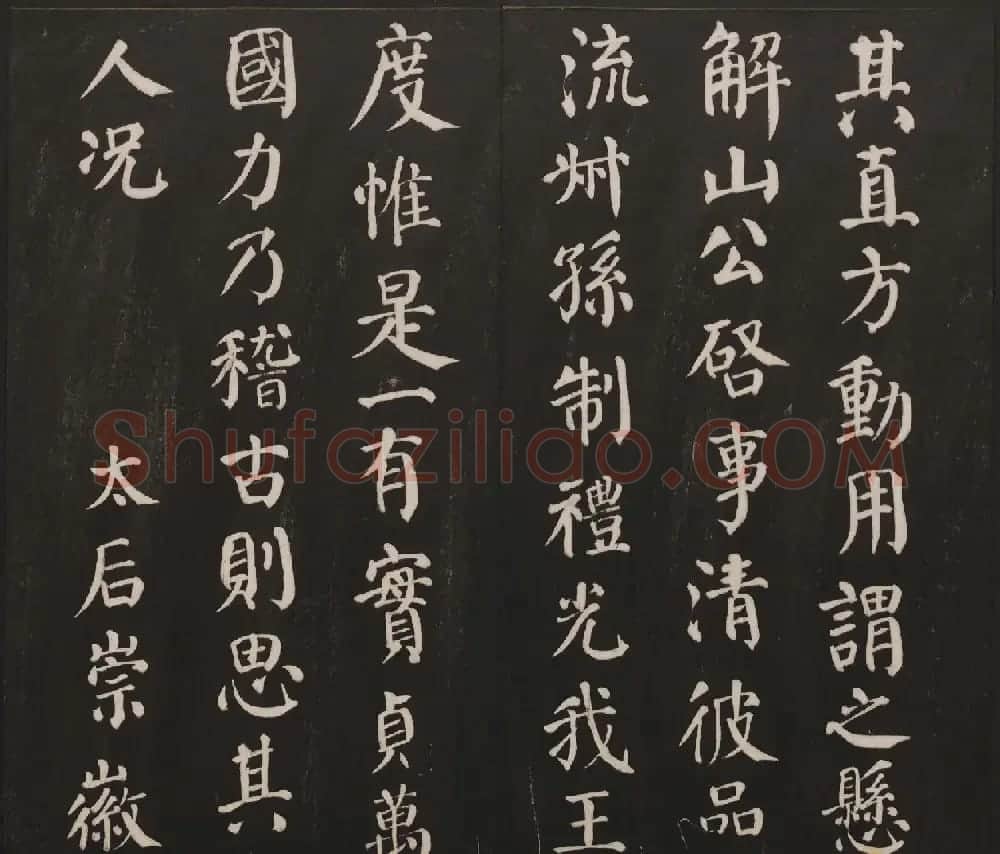 其直方動用謂之懸
解山公啓事清彼品
流叔孫制禮光我王
度惟是一有實貞萬
國力乃稽古則思其
人况 太后崇徽
Shufazilido.COM